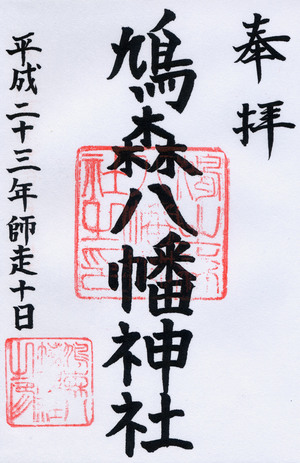 奉拝
鳩森八幡神社
平成二十三年師走十日